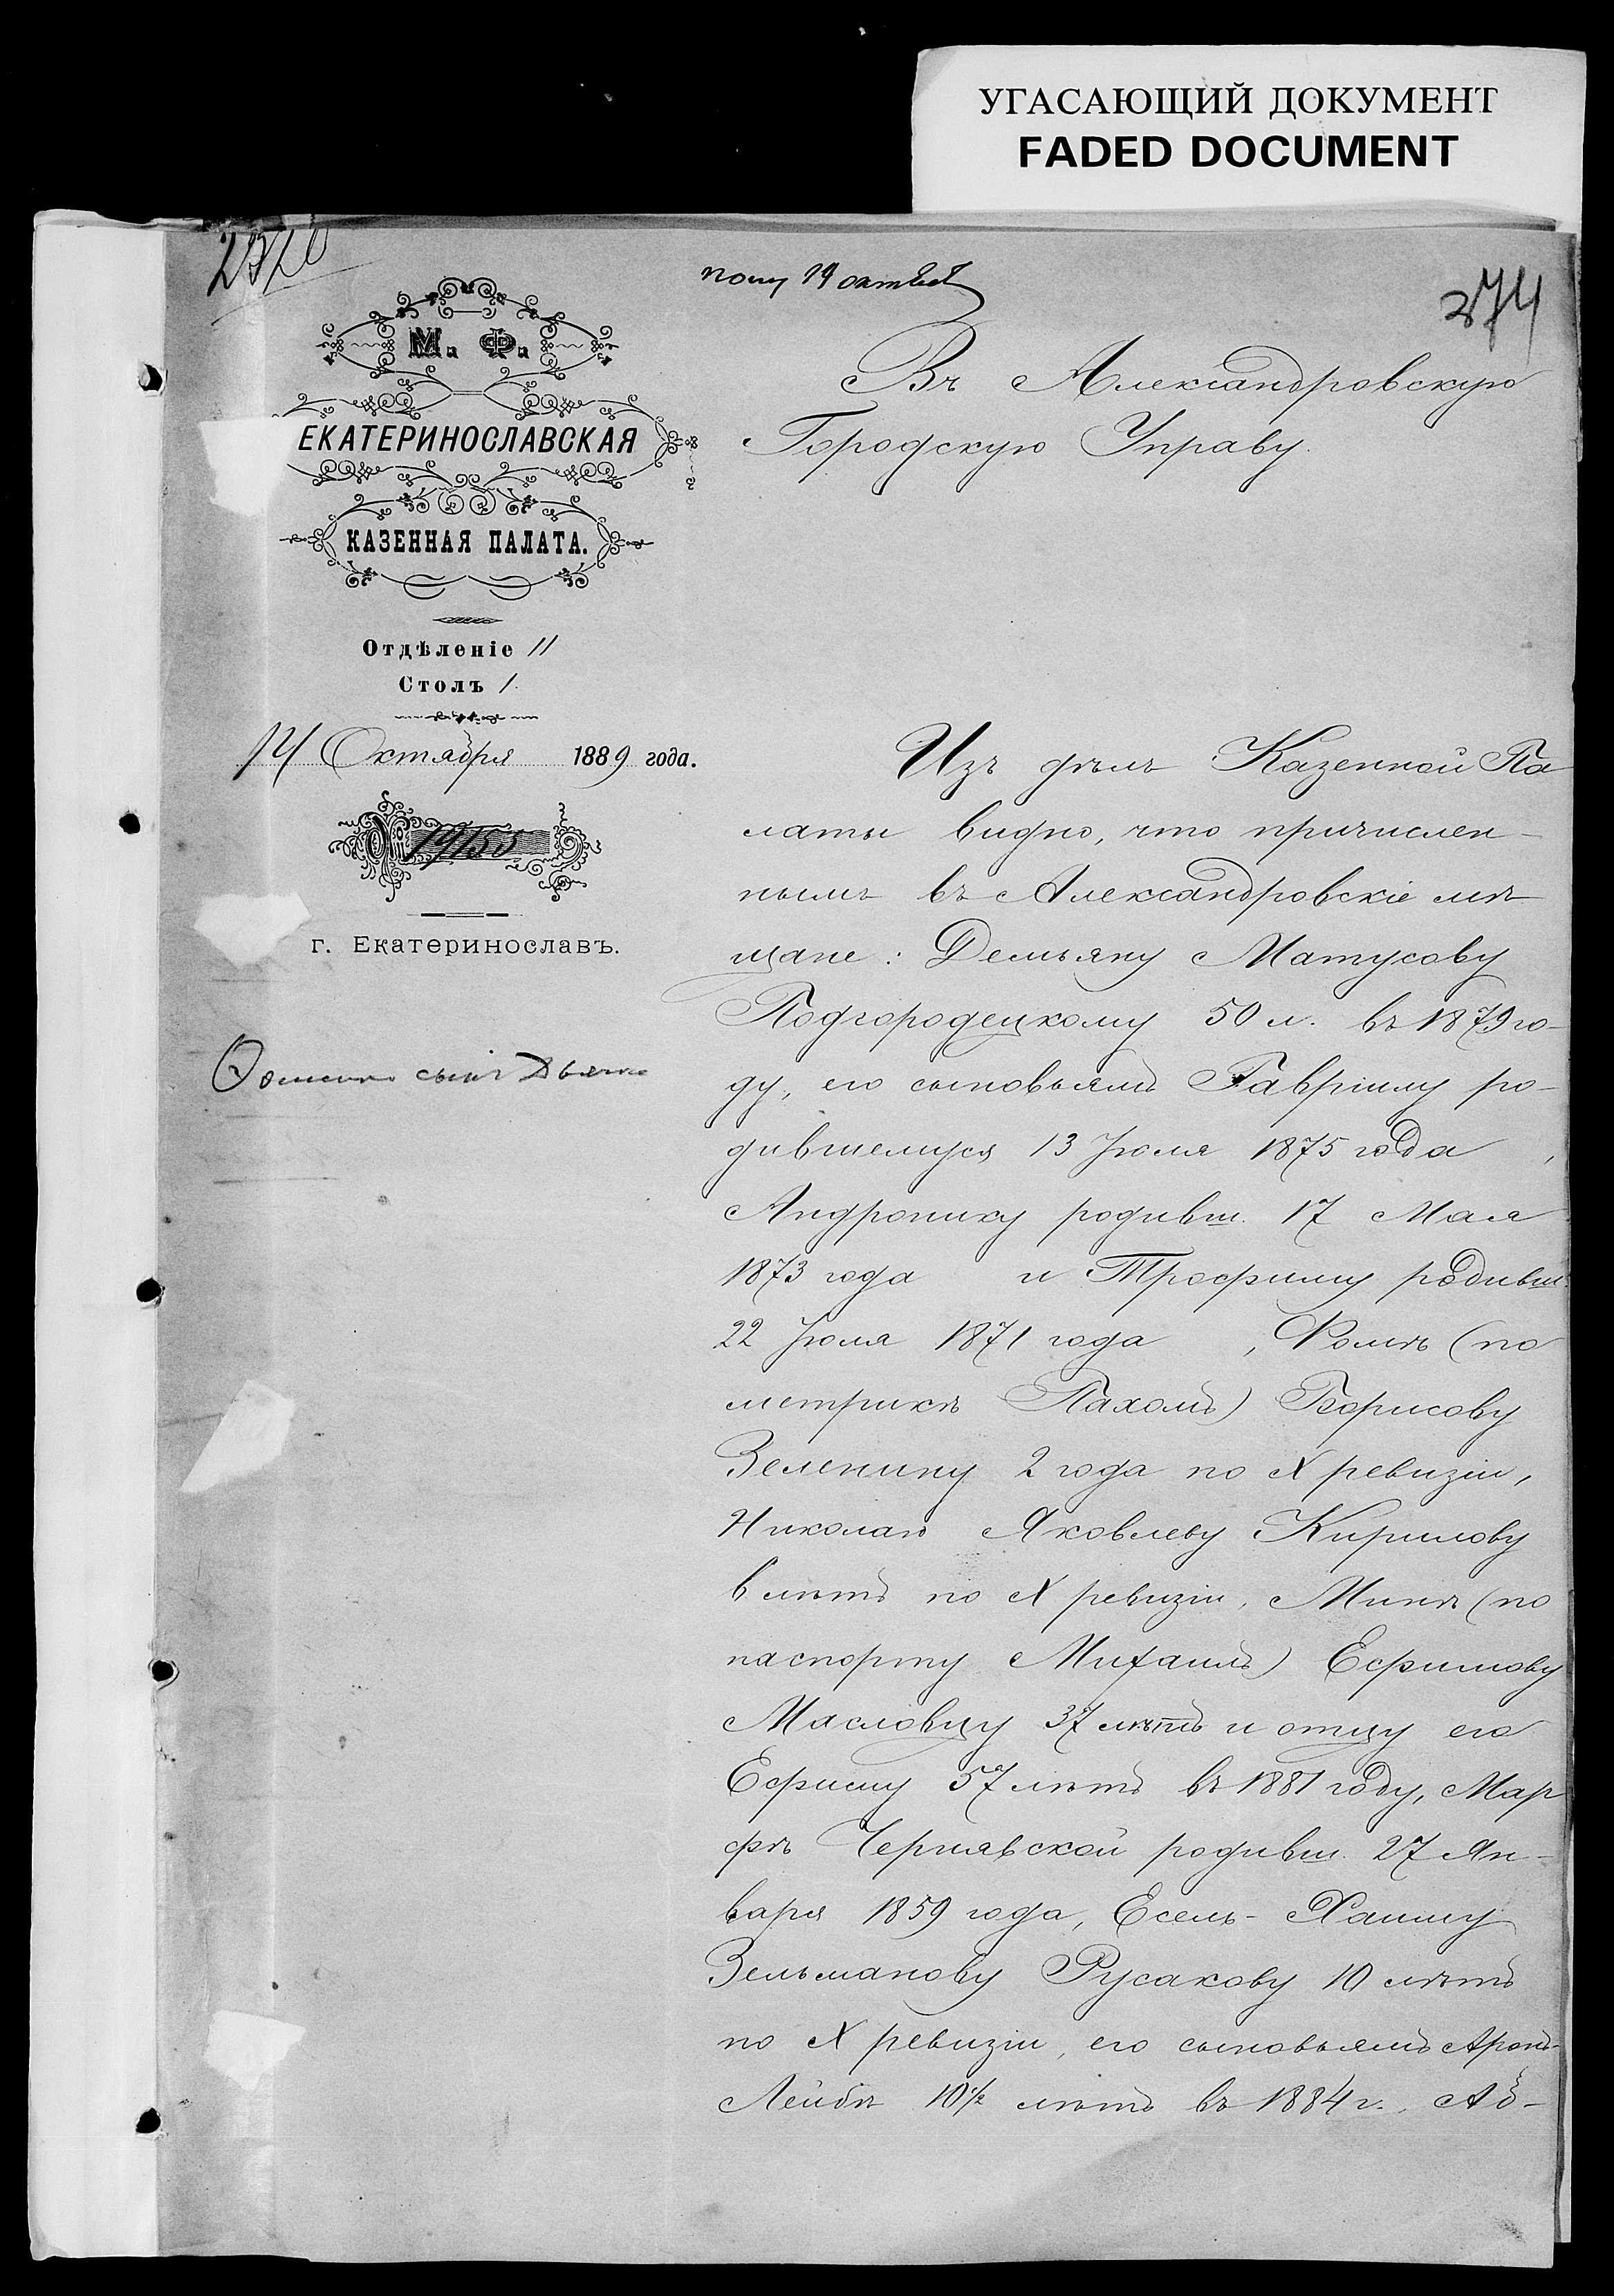 УГАСАЮЩИЙ ДОКУМЕНТ
FADED DOCUMENT
274
М. Ф.
ЕКАТЕРИНОСЛАВСКАЯ
КАЗЕННАЯ ПАЛАТА.
Отдѣленіе II
Столъ 1.
14 Октября 1889 года.
№ 19155
г. Екатеринославъ.
пол 19 октяб
Въ Александровскую
Городскую Управу.
Изъ дѣлъ Казенной Па
латы видно, что причислен-
нымъ въ Александровскіе мѣ
щане: Демьяну Матусову
Подгородецкому 50 л. въ 1879 го-
ду, его сыновьямъ Гавріилу ро-
дившемуся 13 Іюля 1875 года,
Андронику родивш. 17 Мая
1873 года и Трофиму родивш.
22 Іюля 1871 года, Ромѣ (по
метрикѣ Пахомъ) Борисову
Зеленину 2 года по X ревизіи,
Николаю Яковлеву Кирилову
6 лѣтъ по X ревизіи, Минѣ (по
паспорту Михаилъ) Ефимову
Масловцу 37 лѣтъ и отцу его
Ефиму 57 лѣтъ въ 1881 году, Мар
фѣ Чернявской родивш. 27 Ян-
варя 1859 года, Есель-Хаиму
Зельманову Русакову 10 лѣтъ
по X ревизіи, его сыновьямъ Аронъ-
Лейбѣ 10½ лѣтъ въ 1884 г., Аб-